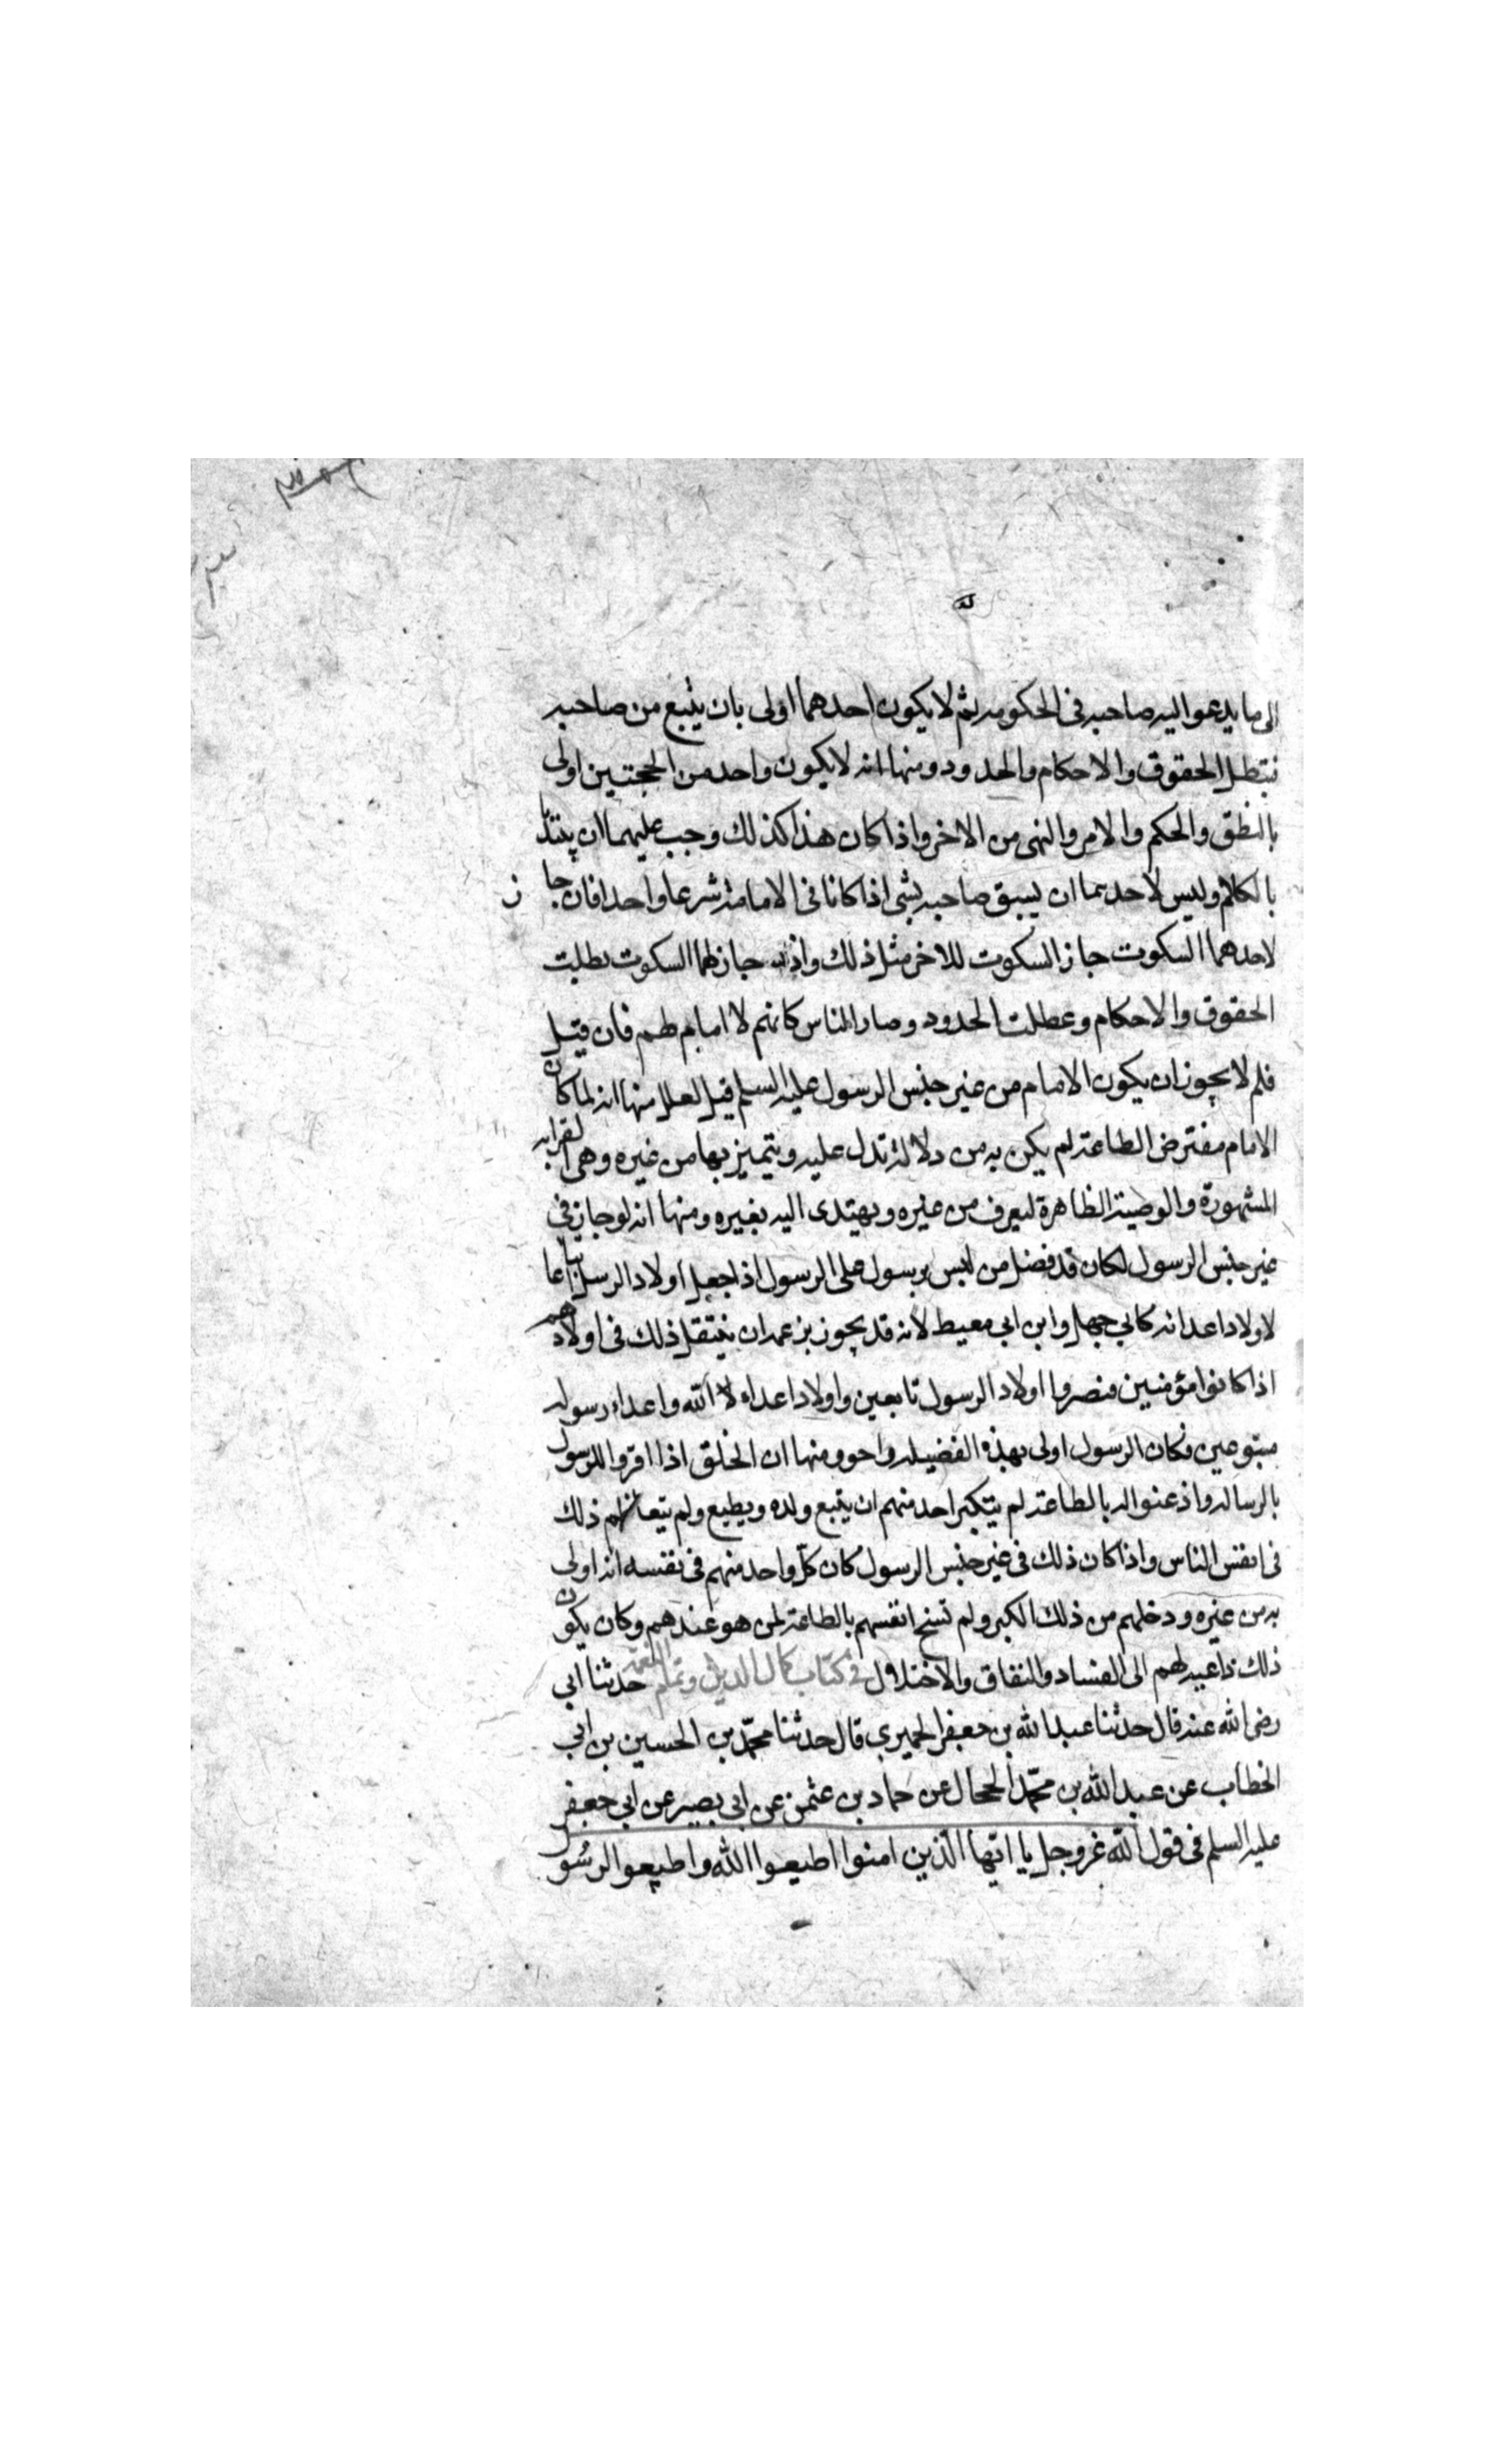 الى ما يدعوا اليه صاحبه فى الحكومه ثم لا يكون احدهما اولى بان يتبع من صاحبه
فتبطل الحقوق والاحكام والحدود ومنها انه لا يكون واحد من الحجتين اولى
بالنطق والحكم والامر والنهى من الاخر واذا كان هذا كذلك وجب عليهما ان يبتدا
بالكلام وليس لاحدهما ان يسبق صاحبه بشى اذا كانا فى الامامة شرعا واحدا فان جاز
لاحدهما السكوت جاز السكوت للاخر مثل ذلك واذا جاز لهما السكوت بطلت
الحقوق والاحكام وعطلت الحدود وصار الناس كانهم لا امام لهم فان قيل
فلم لا يجوز ان يكون الامام من غير جنس الرسول عليه السلم قيل لعلل منها انه لما كان
الامام مفترض الطاعة لم يكن بد من دلالة تدل عليه ويتميز بها من غيره وهى القرابه
المشهورة والوصية الظاهرة ليعرف من غيره ويهتدى اليه بغيره ومنها انه لو جاز فى
غير جنس الرسول لكان قد فضل من ليس برسول على الرسول اذا جعل اولاد الرسل اتباعا
لاولاد اعدائه كابي جهل وابن ابي معيط لانه قد يجوز بزعمه ان ينتقل ذلك فى اولادهم
اذا كانوا مؤمنين فنصروا اولاد الرسول تابعين واولاد اعداء الله واعداء رسوله
متبوعين فكان الرسول اولى بهذه الفضيله واحو ومنها ان الخلق اذا اقروا للرسول
بالرساله واذعنوا له بالطاعة لم يتكبر احد منهم ان يتبع ولده ويطيع ولم يتعاظم ذلك
فى انفس الناس واذا كان ذلك فى غير جنس الرسول كان كل واحد منهم فى نفسه انه اولى
به من غيره ودخلهم من ذلك الكبر ولم تسنح انفسهم بالطاعة لمن هو عندهم وكان يكون
ذلك داعيه لهم الى الفساد والنفاق والاختلاف فى كتاب كمال الدين وتمام النعمة حدثنا ابي
رضى الله عنه قال حدثنا عبد الله بن جعفر الحميري قال حدثنا محمّد بن الحسين بن ابي
الخطاب عن عبد الله بن محمّد الحجال عن حماد بن عثمن عن ابى بصير عن ابي جعفر
عليه السلم فى قول الله عز وجل يا ايها الّذين امنوا اطيعوا الله واطيعوا الرسُول